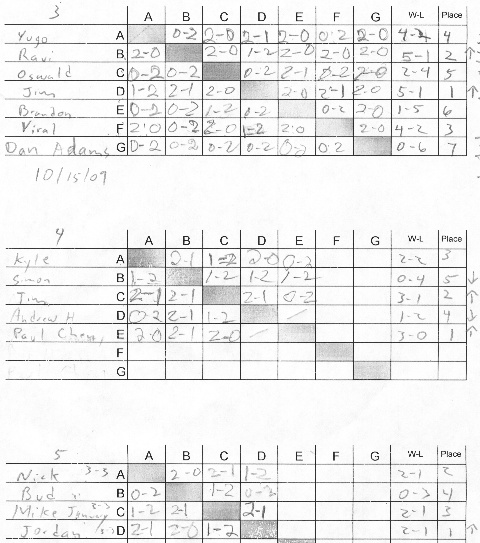 3 A B C D E F G W-L Place
Yugo A 0-2 2-0 2-1 2-0 0-2 2-0 4-2 4
Ravi B 2-0 2-0 1-2 2-0 2-0 2-0 5-1 2 ↑
Oswald C 0-2 0-2 0-2 2-1 0-2 2-0 2-4 5
Jim D 1-2 2-1 2-0 2-0 2-1 2-0 5-1 1 ↑
Brandon E 0-2 0-2 1-2 0-2 0-2 2-0 1-5 6
Viral F 2-0 0-2 2-0 1-2 2-0 2-0 4-2 3
Dan Adams G 0-2 0-2 0-2 0-2 0-2 0-2 0-6 7
10/15/09
4 A B C D E F G W-L Place
Kyle A 2-1 1-2 2-0 0-2 2-2 3
Simon B 1-2 1-2 1-2 1-2 0-4 5 ↓
Jim C 2-1 2-1 2-1 0-2 3-1 2 ↑
Andrew H D 0-2 2-1 1-2 1-2 4 ↓
Paul E 2-0 2-1 2-0 3-0 1 ↑
F
G
5 A B C D E F G W-L Place
Nick 3-3 A 2-0 2-1 1-2 2-1 2
Bud B 0-2 1-2 0-2 0-3 4
Mike 3-3 C 1-2 2-1 2-1 2-1 3
Jordan D 2-1 2-0 1-2 2-1 1 ↑